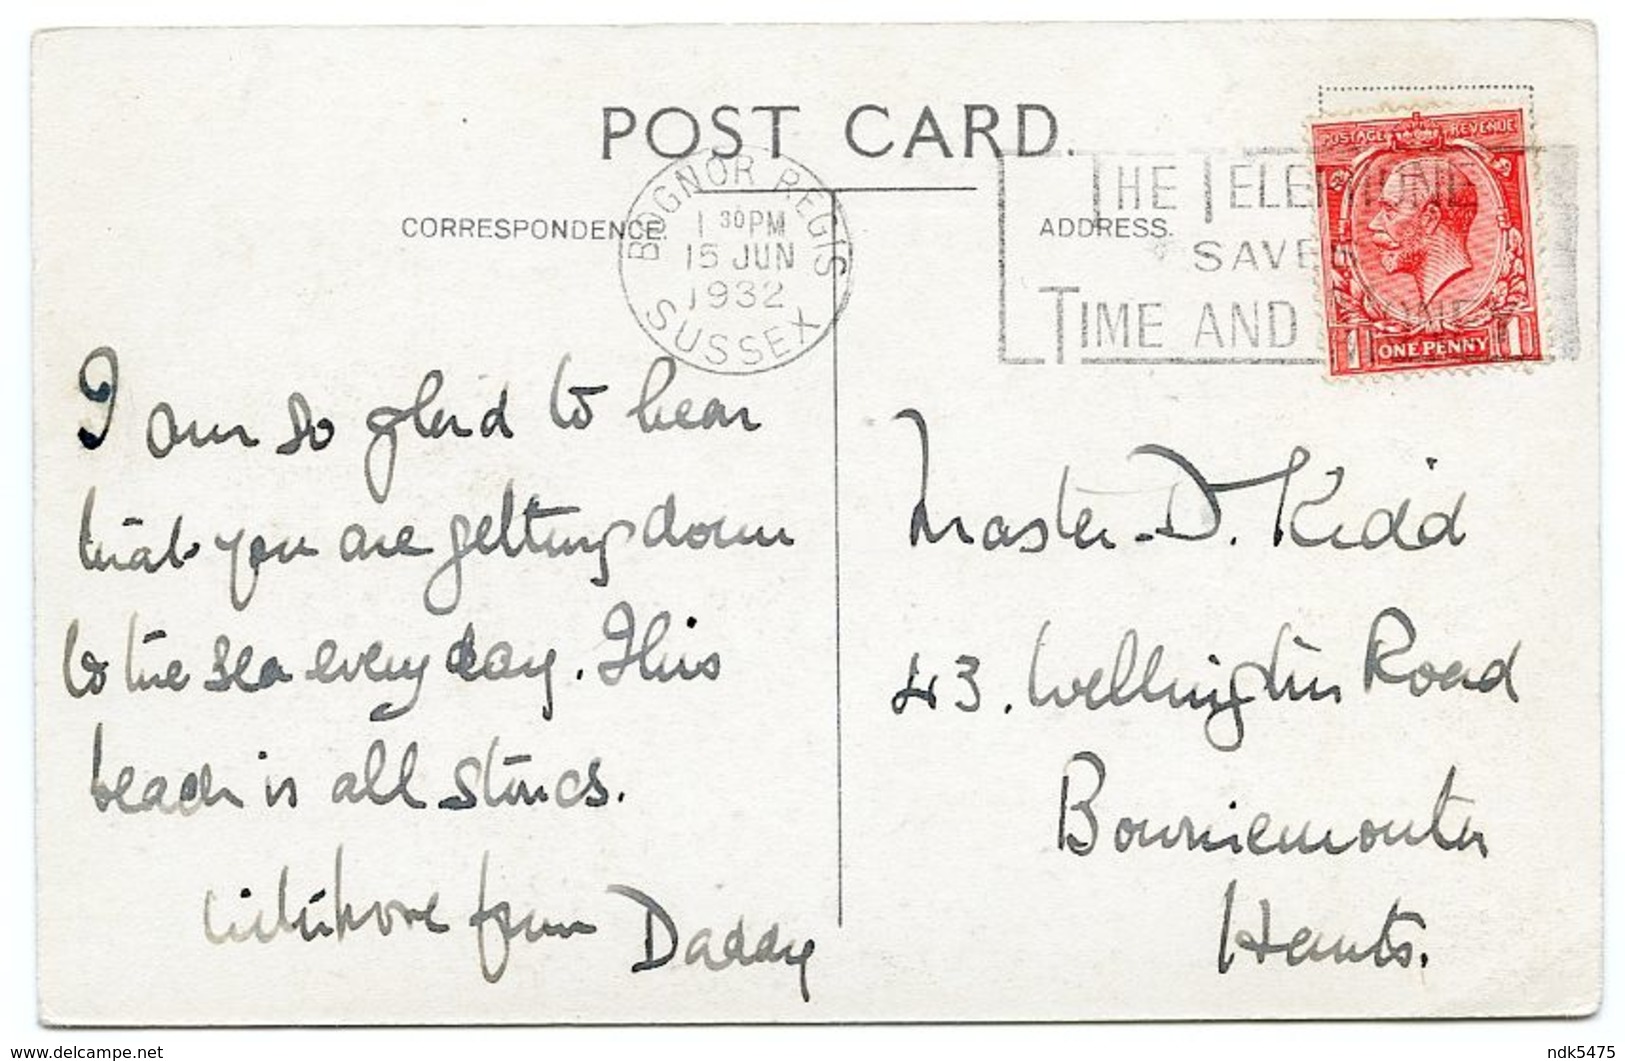 POST CARD.
CORRESPONDENCE.
ADDRESS.
BOGNOR REGIS
1 30 PM
15 JUN
1932
SUSSEX
THE TELEPHONE
SAVES
TIME AND MONEY
POSTAGE REVENUE
1 ONE PENNY 1
I am so glad to hear
that you are getting down
to the sea every day. This
beach is all stones.
with love from Daddy
Master D. Kidd
43. Wellington Road
Bournemouth
Hants.
delcampe.net
ndk5475